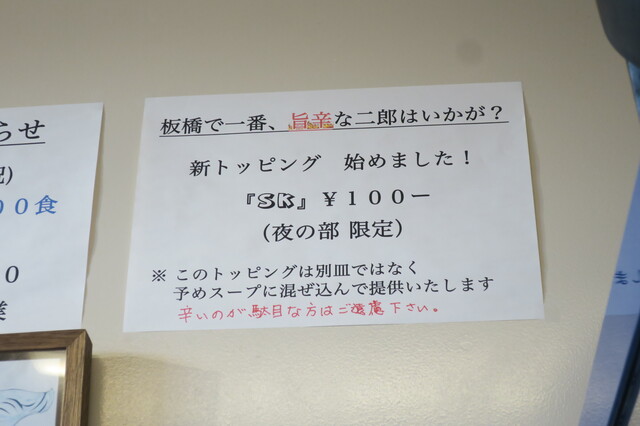 らせ
００食
０
業
板橋で一番、旨辛な二郎はいかが？
新トッピング　始めました！
『SK』￥１００ー
(夜の部 限定)
※ このトッピングは別皿ではなく
予めスープに混ぜ込んで提供いたします
辛いのが駄目な方はご遠慮下さい。